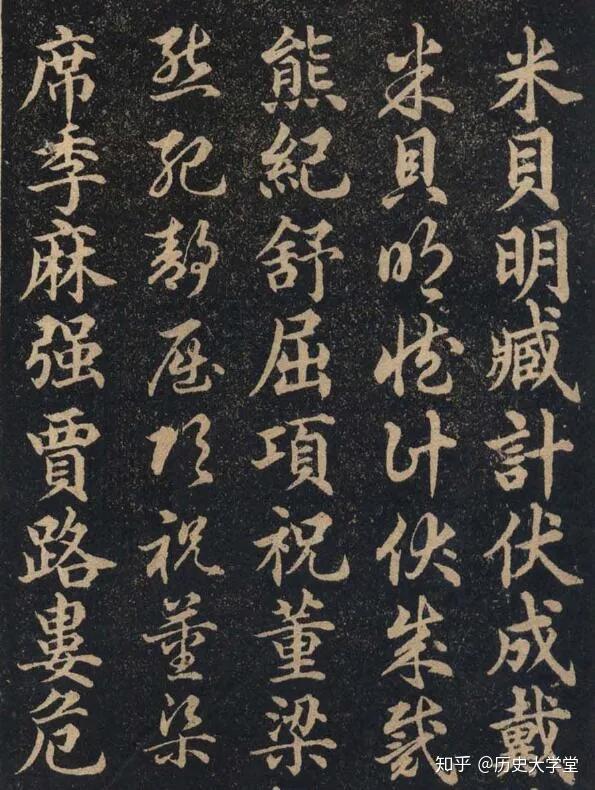 米貝明臧計伏成戴
米貝明臧計伏成戴
熊紀舒屈項祝董梁
熊紀舒屈項祝董梁
席季麻强賈路婁危
知乎 @历史大学堂